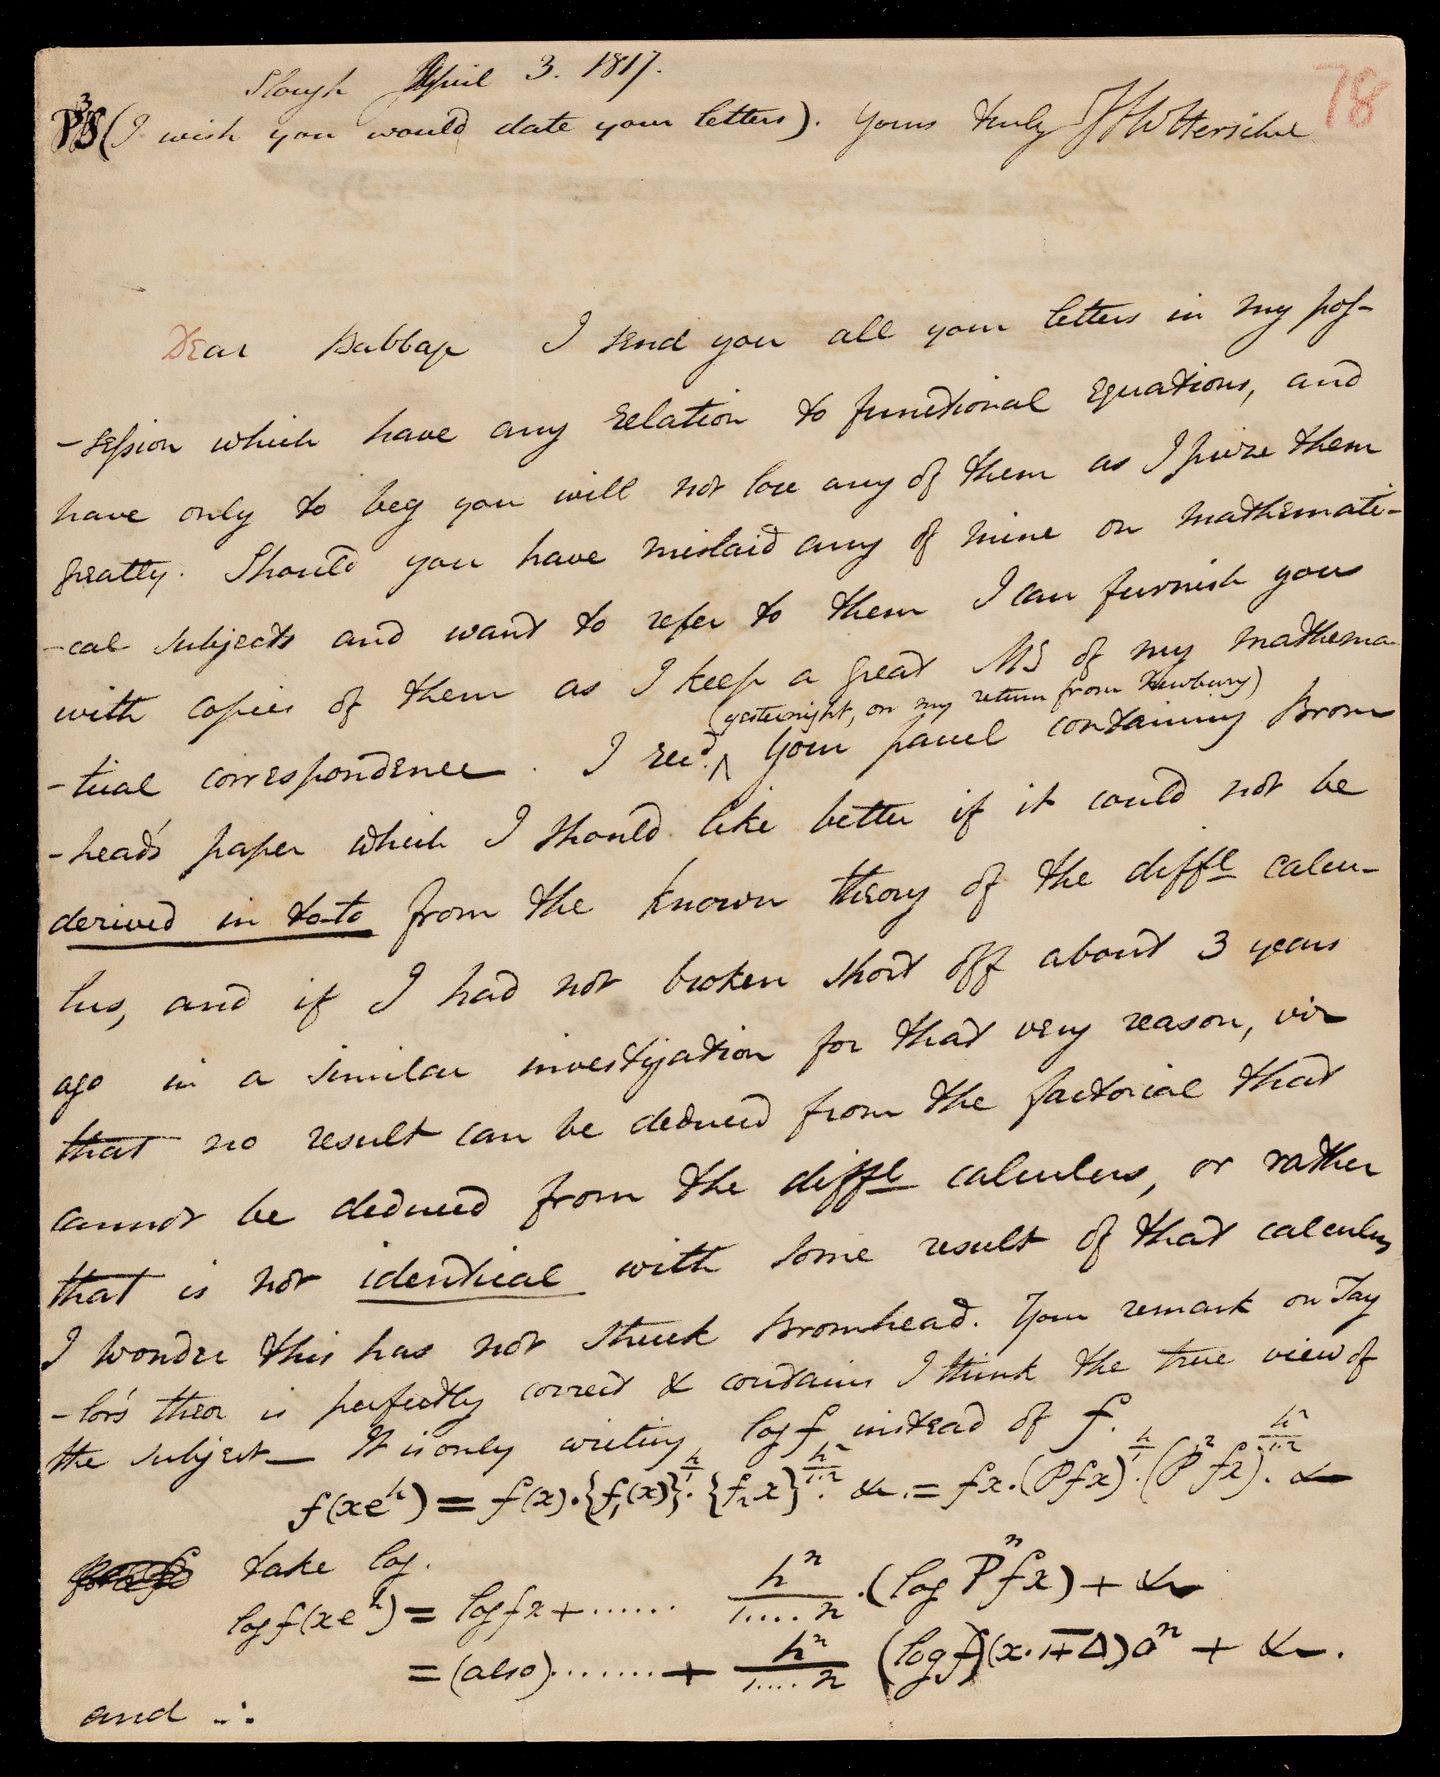 Slough April 3. 1817.
78
P3S (I wish you would date your letters). Yours truly JFW Herschel
Dear Babbage I send you all your letters in my pos-
-session which have any relation to functional equations, and
have only to beg you will not lose any of them as I prize them
greatly. Should you have mislaid any of mine on mathemati-
-cal subjects and want to refer to them I can furnish you
with copies of them as I keep a great MS of my mathema-
(yesternight, on my return from Newbury)
-tical correspondence. I recd. ^ your parcel containing Brom
-head's paper which I should like better if it could not be
derived in toto from the known theory of the diffl calcu-
lus, and if I had not broken short off about 3 years
ago in a similar investigation for that very reason, viz
that no result can be deduced from the factorial that
cannot be deduced from the diffl calculus, or rather
that is not identical with some result of that calculus
I wonder this has not struck Bromhead. Your remark on Tay
-lor's theor is perfectly correct & contains I think the true view of
the subject— It is only writing log f instead of f.
f(xe^h) = f(x).{f₁(x)}^{h/1}.{f₂x}^{h²/1.2}. &c. = fx.(Pfx)^{h/1}.(P²fx)^{h²/1.2}. &c
take log.
log f(xe^h) = log fx + ...... h^n/1....n .(log P^n fx) + &c
= (also) ....... + h^n/1....n (log f)(x.1+Δ)o^n + &c.
and ∴